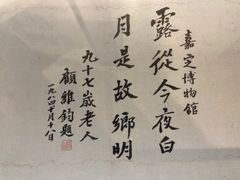 嘉定博物館
露從今夜白
月是故鄉明
九十七歲老人
顧維鈞題
一九八四十月十八日